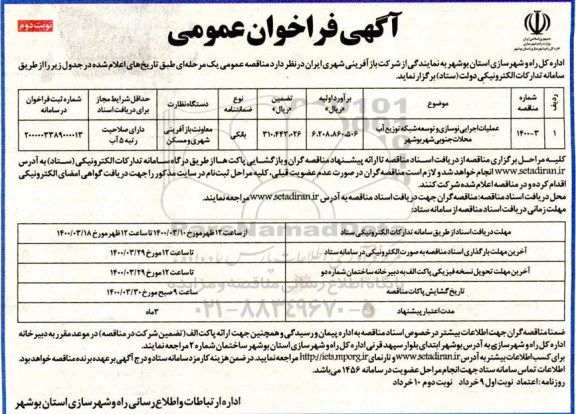 نوبت دوم
آگهی فراخوان عمومی
اداره کل راه و شهرسازی استان بوشهر به نمایندگی از شرکت بازآفرینی شهری ایران در نظر دارد مناقصه عمومی یک مرحله‌ای طبق تاریخ‌های اعلام شده در جدول زیر را از طریق
سامانه تدارکات الکترونیکی دولت (ستاد) برگزار نماید.
ردیف
شماره مناقصه
موضوع
برآورد اولیه «ریال»
تضمین «ریال»
نوع ضمانتنامه
دستگاه نظارت
حداقل شرایط مجاز برای دریافت اسناد
شماره ثبت فراخوان در سامانه
۱
۱۴۰۰-۳
عملیات اجرایی نوسازی و توسعه شبکه توزیع آب محلات جنوبی شهر بوشهر
۶،۲۰۸،۸۶۰،۵۰۶
۳۱۰،۴۴۳،۰۲۶
بانکی
معاونت بازآفرینی شهری و مسکن
دارای صلاحیت رتبه ۵ آب
۲۰۰۰۰۰۳۳۸۹۰۰۰۰۱۳
کلیه مراحل برگزاری مناقصه از دریافت اسناد مناقصه تا ارائه پیشنهاد مناقصه گران و بازگشایی پاکت‌ها از طریق درگاه سامانه تدارکات الکترونیکی (ستاد) به آدرس
www.setadiran.ir انجام خواهد شد و لازم است مناقصه گران در صورت عدم عضویت قبلی، کلیه مراحل ثبت نام در سایت مذکور را جهت دریافت گواهی امضای الکترونیکی
اقدام کرده و در مناقصه اعلام شده شرکت کنند.
محل دریافت اسناد مناقصه: مناقصه گران جهت دریافت اسناد مناقصه به آدرس www.setadiran.ir مراجعه نمایند.
مهلت زمانی دریافت اسناد مناقصه از سامانه ستاد:
مهلت دریافت اسناد از طریق سامانه تدارکات الکترونیکی ستاد
از ساعت ۱۲ ظهر مورخ ۱۴۰۰/۰۳/۱۰ تا ساعت ۱۲ ظهر مورخ ۱۴۰۰/۰۳/۱۸
آخرین مهلت بارگذاری اسناد مناقصه به صورت الکترونیکی در سامانه ستاد
تا ساعت ۱۲ مورخ ۱۴۰۰/۰۳/۲۹
آخرین مهلت تحویل نسخه فیزیکی پاکت الف به دبیرخانه ساختمان شماره دو
تا ساعت ۱۲ مورخ ۱۴۰۰/۰۳/۲۹
تاریخ گشایش پاکات مناقصه
ساعت ۹ صبح مورخ ۱۴۰۰/۰۳/۳۰
مدت اعتبار پیشنهاد
۳ ماه
ضمنا مناقصه گران جهت اطلاعات بیشتر در خصوص اسناد مناقصه به اداره پیمان و رسیدگی و همچنین جهت ارائه پاکت الف (تضمین شرکت در مناقصه) در موعد مقرر به دبیرخانه
اداره کل راه و شهرسازی به آدرس بوشهر ابتدای بلوار سپهبد قرنی اداره کل راه و شهرسازی استان بوشهر ساختمان شماره ۲ مراجعه نمایند.
برای کسب اطلاعات بیشتر به آدرس www.setadiran.ir و تارنمای http://iets.mporg.ir مراجعه نمایید. در ضمن هزینه کارمزد سامانه ستاد و درج آگهی بر عهده برنده مناقصه خواهد بود.
اطلاعات تماس سامانه ستاد جهت انجام مراحل عضویت در سامانه ۱۴۵۶ می باشد.
روزنامه: اعتماد نوبت اول ۹ خرداد نوبت دوم ۱۰ خرداد
اداره ارتباطات و اطلاع رسانی راه و شهرسازی استان بوشهر
۰۲۱-۸۸۳۴۹۶۷۰-۵